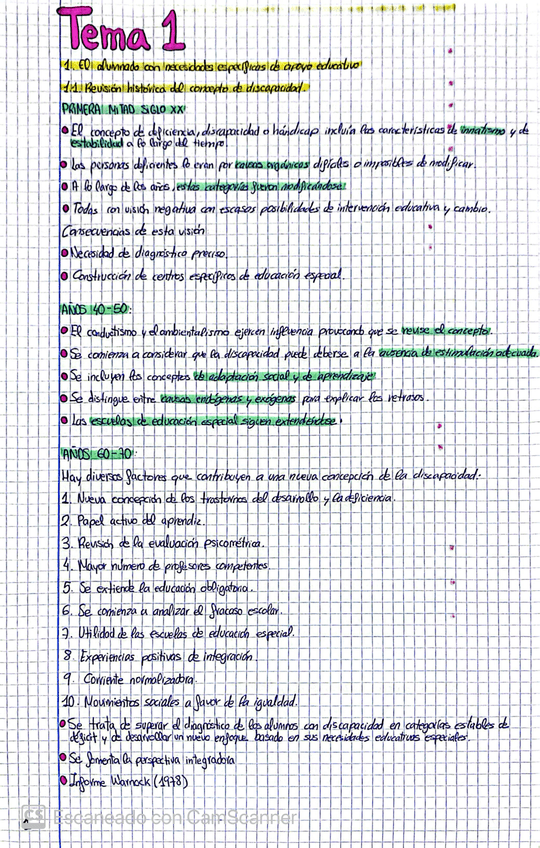 Tema 1
1. El alumnado con necesidades específicas de apoyo educativo
1.1. Revisión histórica del concepto de discapacidad.
PRIMERA MITAD SIGLO XX
• El concepto de deficiencia, discapacidad o hándicap incluía las características de innatismo y de
estabilidad a lo largo del tiempo.
• Las personas deficientes lo eran por causas orgánicas difíciles o imposibles de modificar.
• A lo largo de los años, estas categorías fueron modificándose
• Todas con visión negativa con escasas posibilidades de intervención educativa y cambio.
Consecuencias de esta visión
• Necesidad de diagnóstico preciso.
• Construcción de centros específicos de educación especial.
AÑOS 40-50:
• El conductismo y el ambientalismo ejercen influencia provocando que se revise el concepto.
• Se comienza a considerar que la discapacidad puede deberse a la ausencia de estimulación adecuada.
• Se incluyen los conceptos de adaptación social y de aprendizaje
• Se distingue entre causas endógenas y exógenas para explicar los retrasos.
• Las escuelas de educación especial siguen extendiéndose.
AÑOS 60-70:
Hay diversos factores que contribuyen a una nueva concepción de la discapacidad:
1. Nueva concepción de los trastornos del desarrollo y la deficiencia.
2. Papel activo del aprendiz.
3. Revisión de la evaluación psicométrica.
4. Mayor número de profesores competentes.
5. Se extiende la educación obligatoria.
6. Se comienza a analizar el fracaso escolar.
7. Utilidad de las escuelas de educación especial.
8. Experiencias positivas de integración.
9. Corriente normalizadora.
10. Movimientos sociales a favor de la igualdad.
• Se trata de superar el diagnóstico de los alumnos con discapacidad en categorías estables de
déficit y de desarrollar un nuevo enfoque basado en sus necesidades educativas especiales.
• Se fomenta la perspectiva integradora
• Informe Warnock (1978)
CS Escaneado con CamScanner